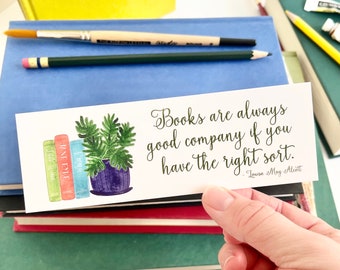 Books are always
good company if you
have the right sort.
-Louisa May Alcott